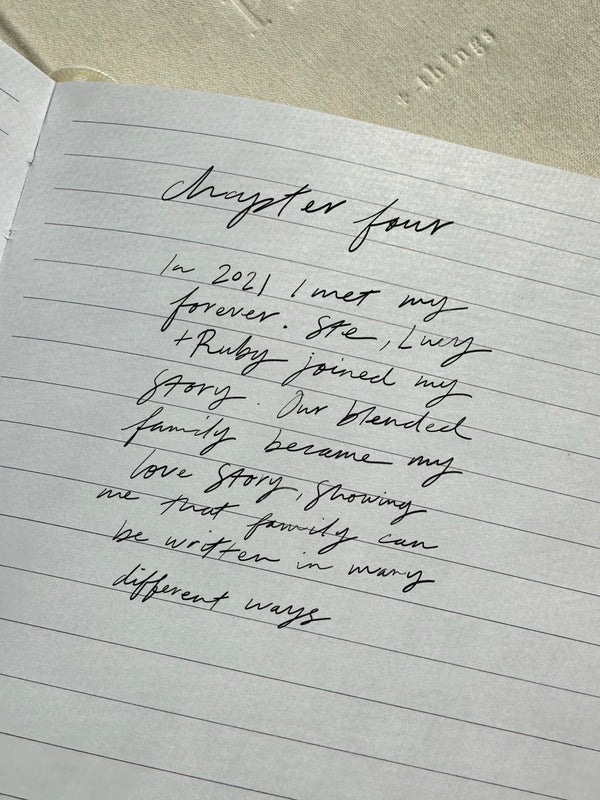 + things
chapter four
In 2021 I met my
forever. Ste, Lucy
+ Ruby joined my
story. Our blended
family became my
love story, showing
me that family can
be written in many
different ways